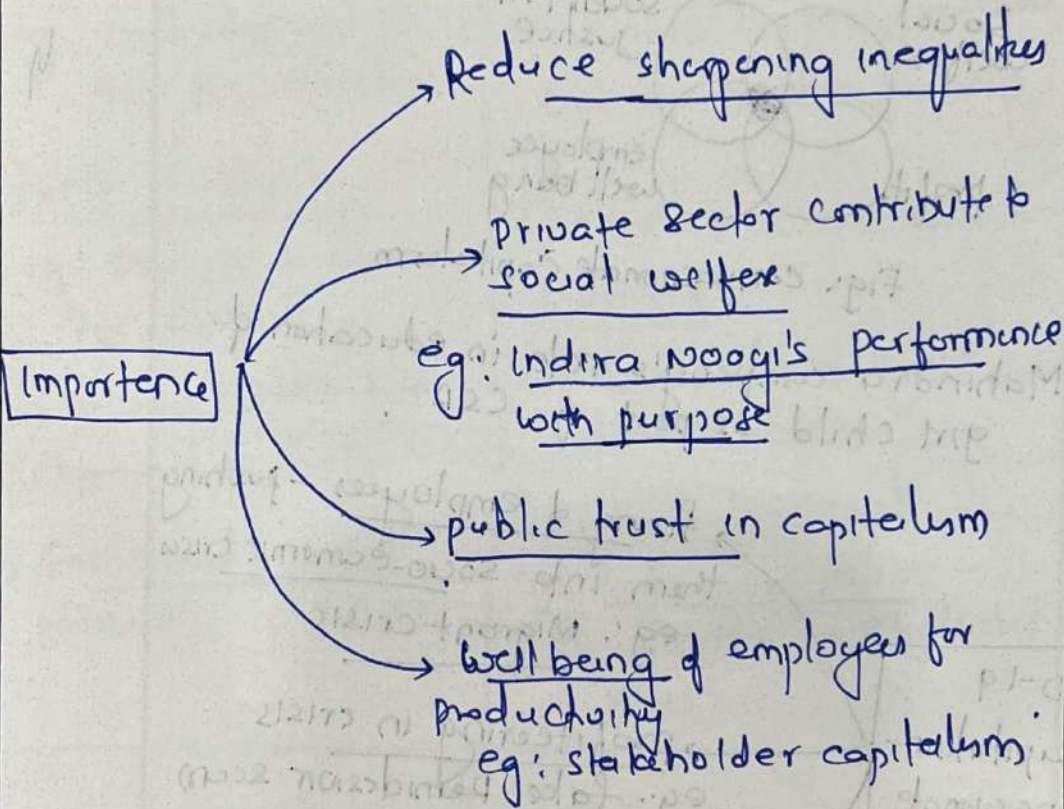 Reduce sharpening inequalities
private sector contribute to
social welfere
eg: Indira Nooyi's performance
with purpose
Importence
public trust in capitalism
well being of employees for
productivity
eg: stakeholder capitalism